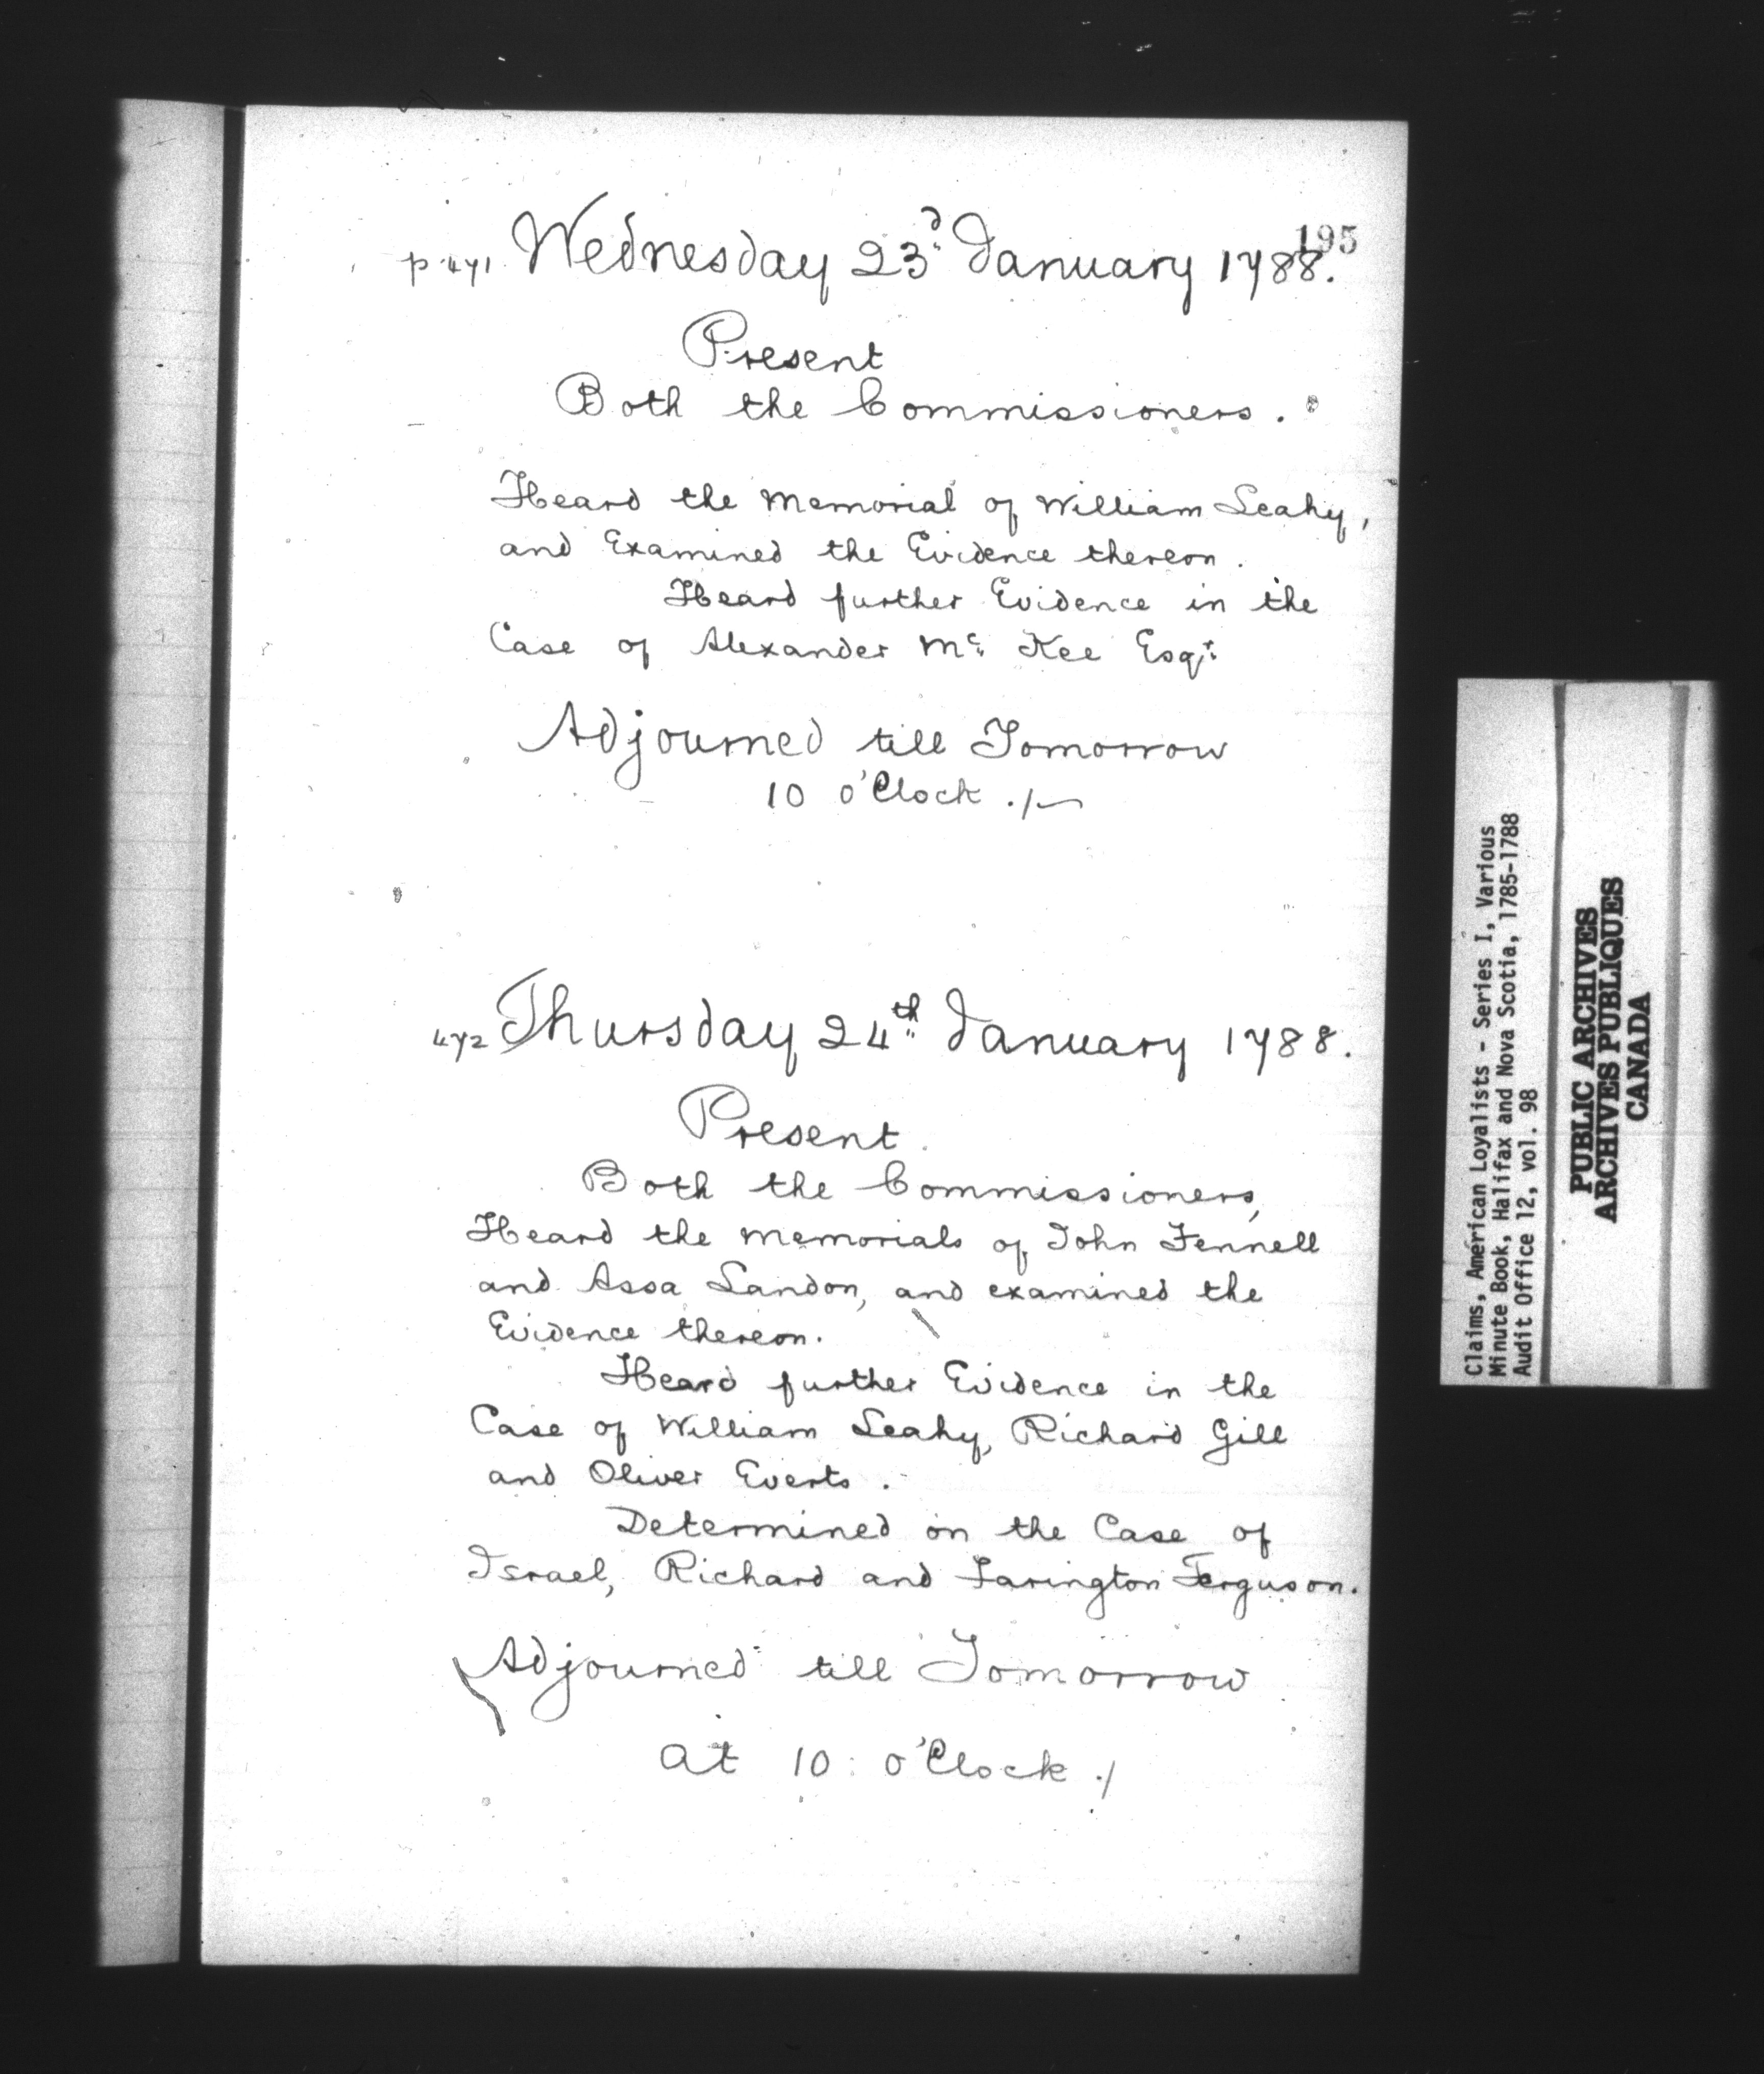 195
p. 471 Wednesday 23d January 1788.
Present
Both the Commissioners.
Heard the Memorial of William Leahy,
and Examined the Evidence thereon.
Heard further Evidence in the
Case of Alexander Mc Kee Esqr
Adjourned till Tomorrow
10 o'Clock ./~
472 Thursday 24th January 1788.
Present
Both the Commissioners,
Heard the Memorials of John Fennell
and Assa Landon, and examined the
Evidence thereon.
Heard further Evidence in the
Case of William Leahy, Richard Gill
and Oliver Everts.
Determined on the Case of
Israel, Richard and Farington Ferguson.
Adjourned till Tomorrow
at 10 o'Clock ./
Claims, American Loyalists - Series I, Various
Minute Book, Halifax and Nova Scotia, 1785-1788
Audit Office 12, vol. 98
PUBLIC ARCHIVES
ARCHIVES PUBLIQUES
CANADA